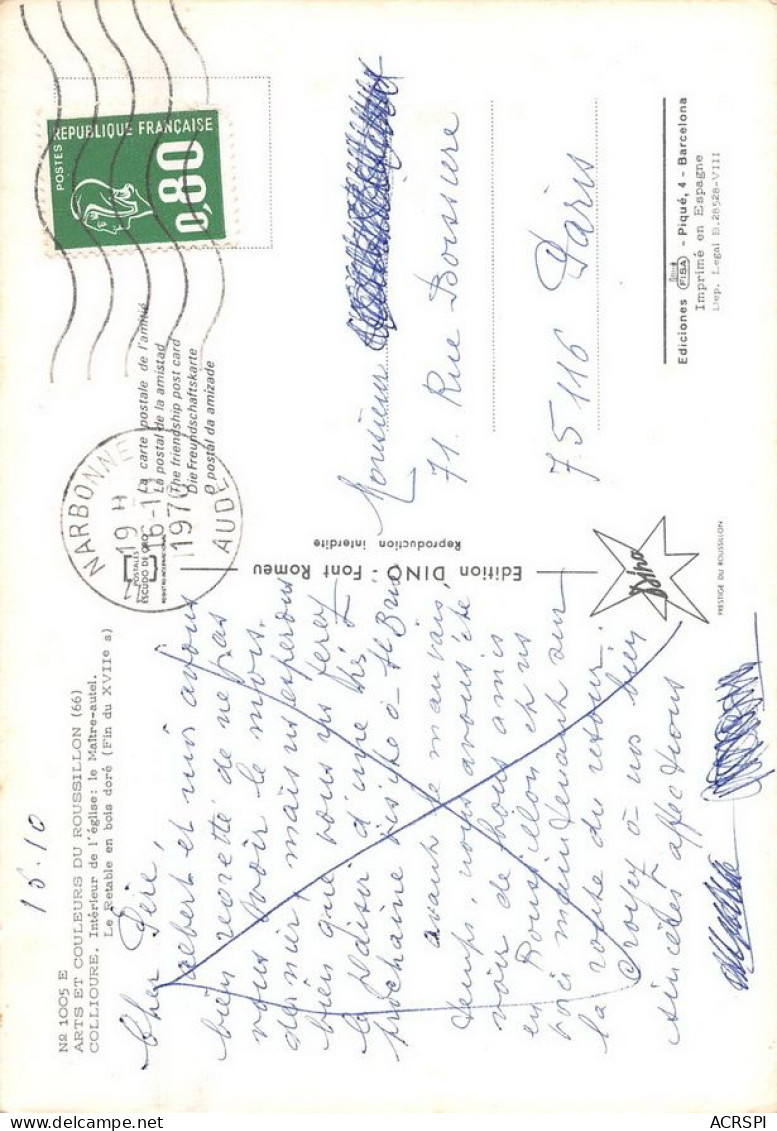 15.10
Nº 1005 E
ARTS ET COULEURS DU ROUSSILLON (66)
COLLIOURE. Intérieur de l'église: le Maître-autel.
Le Retable en bois doré (Fin du XVIIe s)
Cher Père,
Albert et moi avons
bien regretté de ne pas
vous avoir le mois
dernier, mais ns espérons
bien que vous ns ferez
le plaisir d'une
prochaine visite à St Brice
avant le mauvais
temps, nous avons été
voir de bons amis
en Roussillon et ns
voici maintenant sur
la route du retour.
Croyez à nos bien
sincères affections
La carte postale de l'amitié
La postal de la amistad
The friendship post card
Die Freundschaftskarte
O postal da amizade
POSTALES
ESCUDO DE ORO
NARBONNE
19 H
16-10
1976
AUDE
POSTES
REPUBLIQUE FRANÇAISE
0,80
Edition DINO - Font Romeu
Reproduction interdite
Dino
PRESTIGE DU ROUSSILLON
Monsieur
71. Rue Boissiere
75116 Paris
Ediciones FISA - Piqué, 4 - Barcelona
Imprimé en Espagne
Dep. Legal B.28528-VIII
ACRSPI